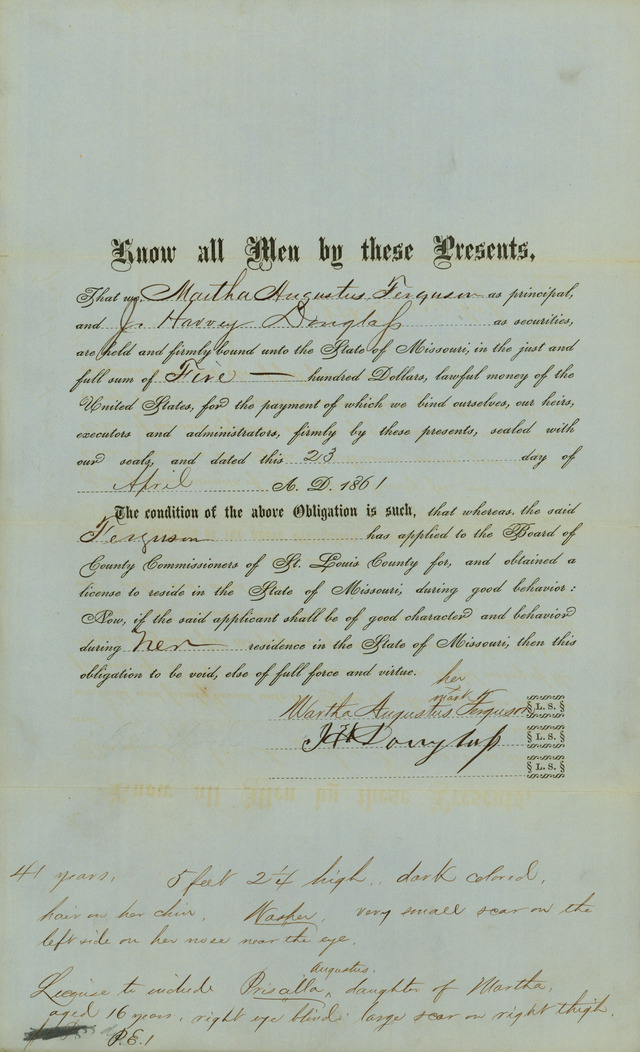 Know all Men by these Presents,
That we, Martha Augustus Ferguson as principal,
and J. Harvey Douglass as securities,
are held and firmly bound unto the State of Missouri, in the just and
full sum of Five — hundred Dollars, lawful money of the
United States, for the payment of which we bind ourselves, our heirs,
executors and administrators, firmly by these presents, sealed with
our seals, and dated this 23 day of
April A. D. 1861
The condition of the above Obligation is such, that whereas, the said
Ferguson has applied to the Board of
County Commissioners of St. Louis County for, and obtained a
license to reside in the State of Missouri, during good behavior:
Now, if the said applicant shall be of good character and behavior
during her residence in the State of Missouri, then this
obligation to be void, else of full force and virtue.
her
mark
Martha Augustus Ferguson L. S.
JH Douglass L. S.
L. S.
41 years, 5 feet 2 1/4 high, dark colored,
hair on her chin, Washer, very small scar on the
left side on her nose near the eye.
License to include Priscilla Augustus, daughter of Martha,
aged 16 years, right eye blind. large scar on right thigh.
P.E.1